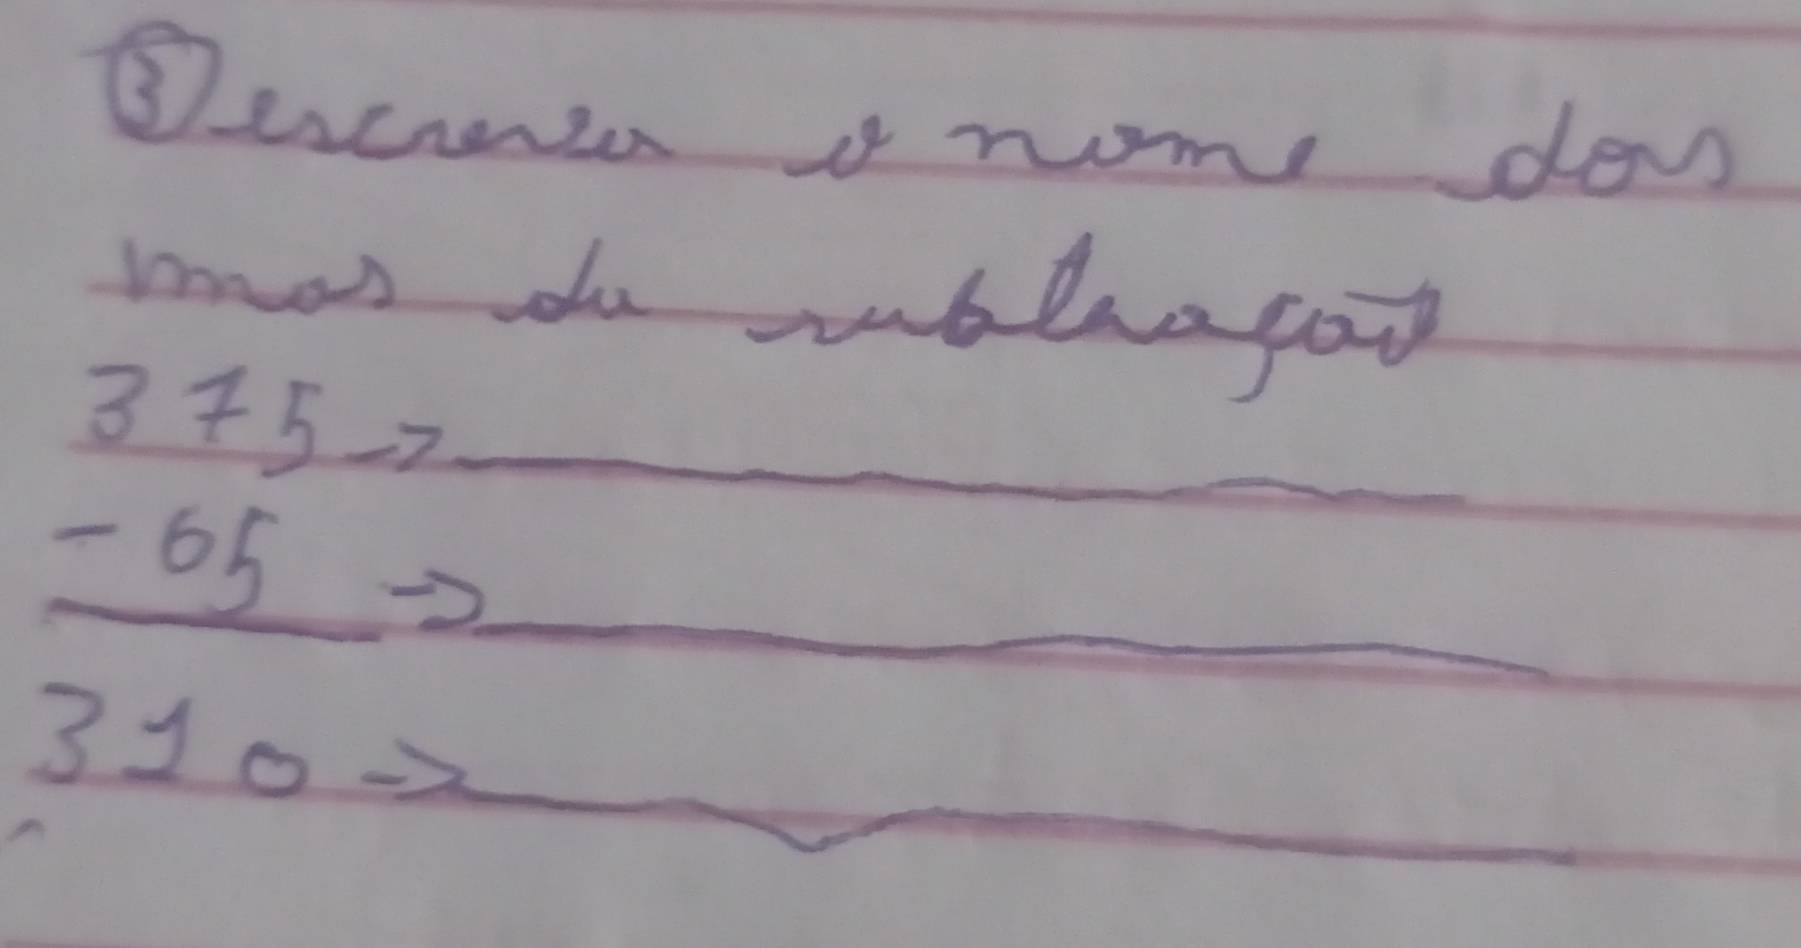 ③ escreva o nome dos
rmos da subtração
375 → ____________
- 65 → ____________
310 → ____________